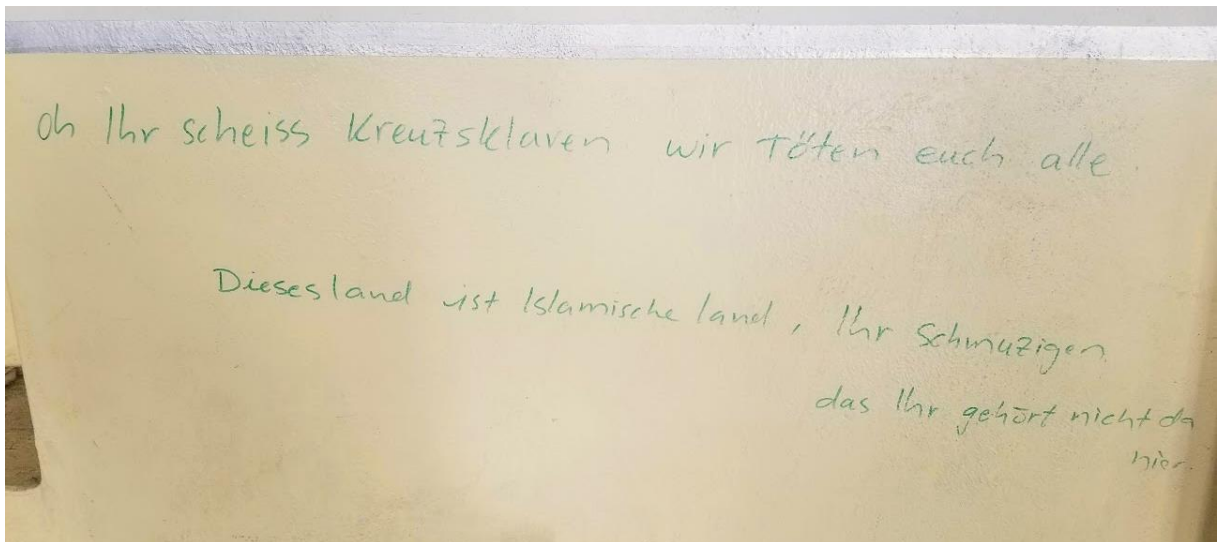 Oh Ihr scheiss Kreuzsklaven wir Töten euch alle.
Dieses land ist Islamische land, Ihr Schmuzigen
das Ihr gehört nicht da
hier.